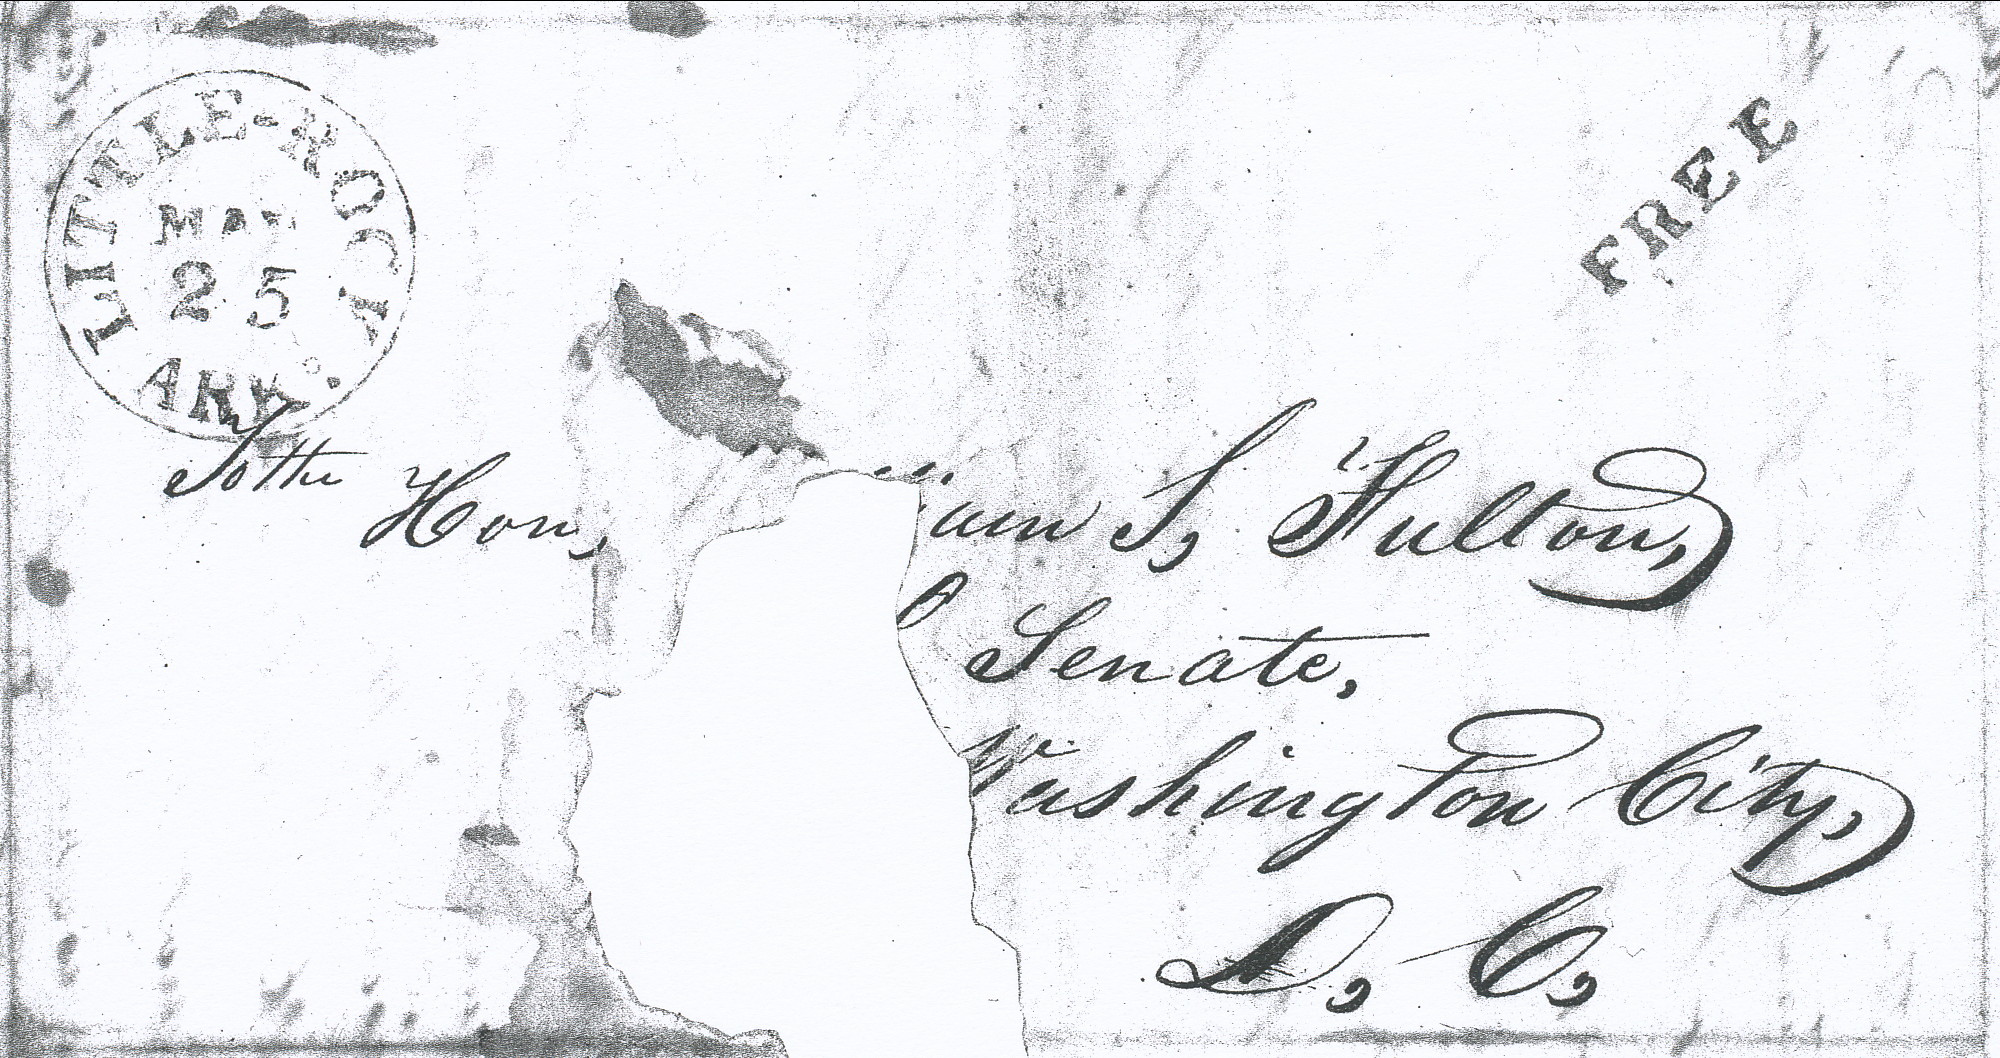 LITTLE-ROCK
MAY
25
ARK.
FREE
To the
Hon, iam S, Fulton,
Senate,
Washington City,
D, C,